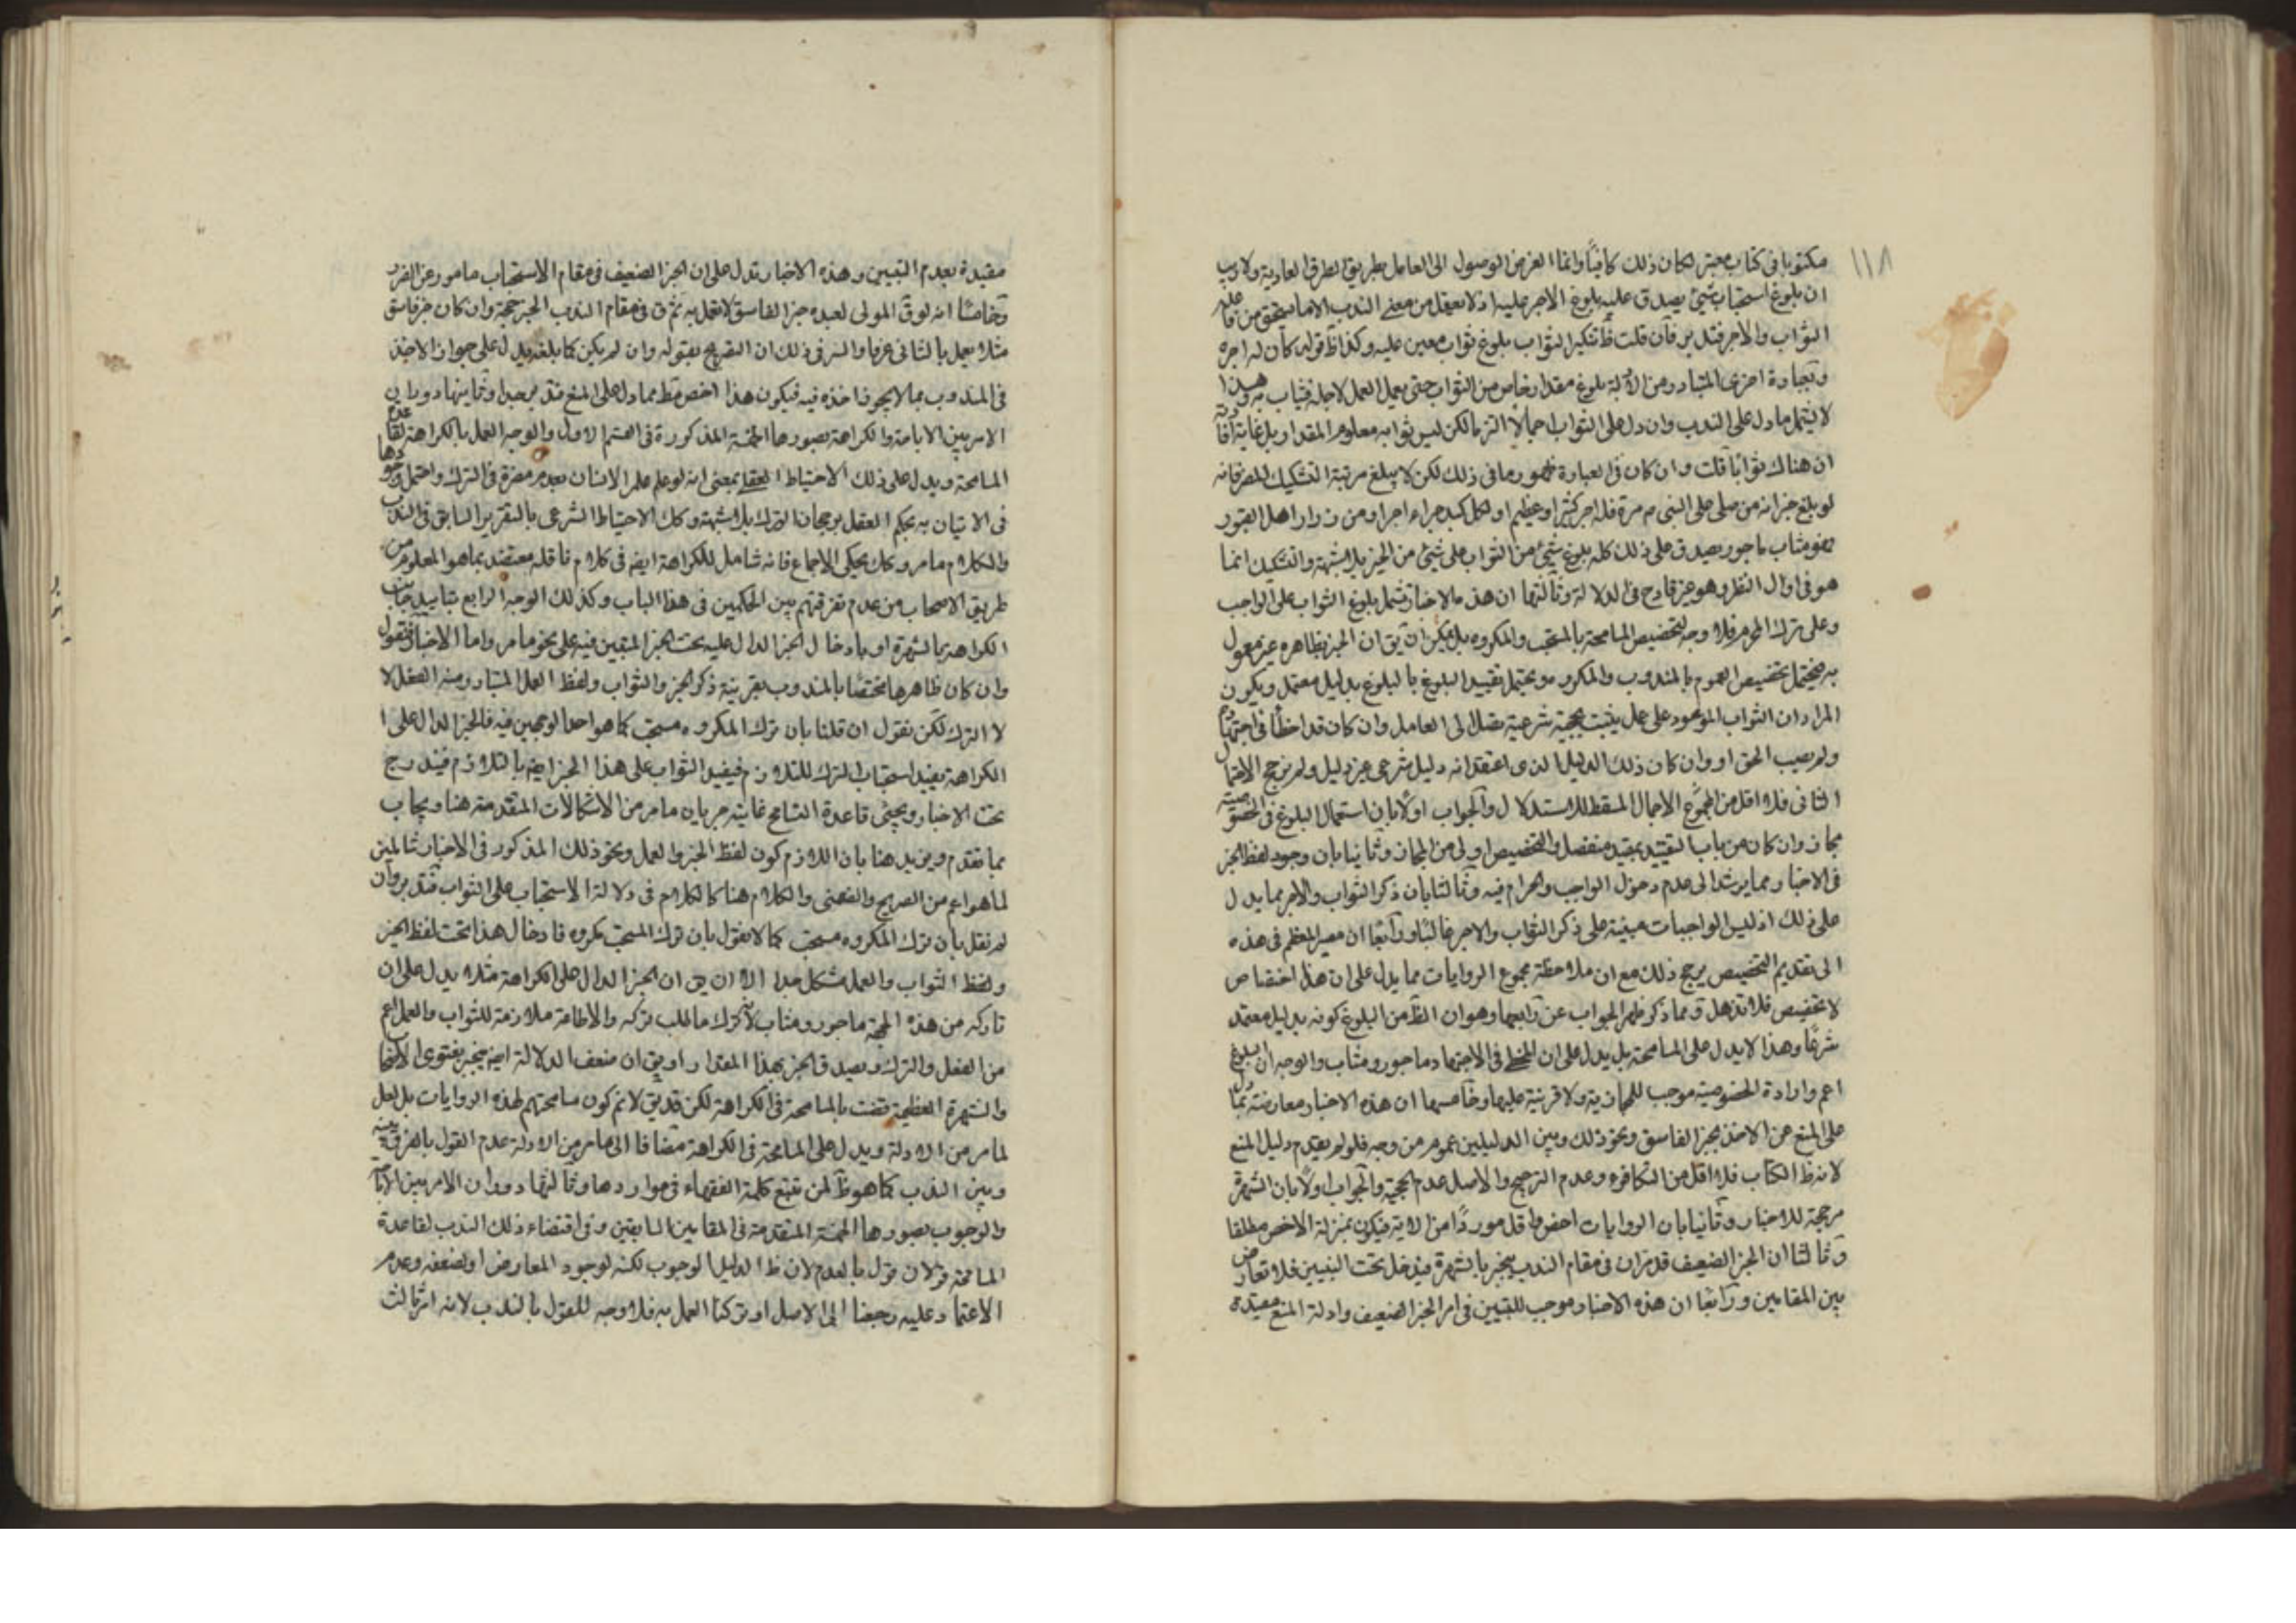 ١١٨
مكتوبا فى كتاب معتبر لكان ذلك كافيًا وانما الغرض الوصول الى العامل بطريق الطرق العادية ولا ريب
ان بلوغ استحباب شئ يصدق عليه بلوغ الاجر عليه اذ لا يعقل من معنى الندب الا ما يستحق من فاعله
الثواب والاجر فتدبر فان قلت ظ تنكير الثواب بلوغ ثواب معين عليه وكذا ظ قوله كان له اجره
وبعبارة اخرى المتبادر من الادلة بلوغ مقدار خاص من الثواب حتى يعمل العمل لاجله فيثاب به وهذا
لا يشمل ما دل على الندب وان دل على الثواب اجمالا التزما لكن ليس ثوابه معلوم المقدار بل غاية افادته
ان هناك ثوابًا قلت وان كان فى العبارة ظهور ما فى ذلك لكن لا يبلغ مرتبة التشكيك المضر فانه
لو بلغ خبر انه من صلى على النبى ص مرة فله اجر كثير او عظيم او لكل كبد حراء اجر او من زار اهل القبور
فهو مثاب ماجور يصدق على ذلك كله بلوغ شئ من الثواب على شئ من الخير بلا شبهة والتشكيك انما
هو فى اوائل النظر وهو غير قادح فى الدلالة وثالثها ان هذه الاخبار تشمل بلوغ الثواب على الواجب
وعلى ترك المحرم فلا وجه لتخصيص المسامحة بالمستحب والمكروه بل يمكن ان يق ان الخبر بظاهره غير معمول
به فيحتمل تخصيص العموم بالمندوب والمكروه ويحتمل تقييد البلوغ بالبلوغ بدليل معتمد ويكون
المراد ان الثواب الموعود على عمل يثبت بحجية شرعية يصل الى العامل وان كان قد اخطأ فى اجتهاده
ولم يصب الحق او وان كان ذلك الدليل الذى اعتقد انه دليل شرعى غير دليل ولم يرجح الاحتمال
الثانى فلا اقل من الاجمال المسقط للاستدلال والجواب اولًا بان استعمال البلوغ فى الخصوصية
مجاز وان كان من باب التقييد بمقيد منفصل والتخصيص اولى من المجاز وثانيا بان وجود لفظ الخير
فى الاخبار مما يرشد الى عدم دخول الواجب والحرام فيه وثالثا بان ذكر الثواب والاجر مما يدل
على ذلك اذ ليس الواجبات مبنية على ذكر الثواب والاجر غالبًا ورابعًا ان مصير المعظم فى هذه
الى تقديم التخصيص يرجح ذلك مع ان ملاحظة مجموع الروايات مما يدل على ان هذا اختصاص
لا تخصيص فلا تذهل ومما ذكر ظهر الجواب عن رابعها وهو ان الظ من البلوغ كونه بدليل معتمد
شرعًا وهذا لا يدل على المسامحة بل يدل على ان المخطئ فى الاجتهاد ماجور ومثاب والوجه ان البلوغ
اعم وارادة الخصوصية موجب للمجازية ولا قرينة عليها وخامسها ان هذه الاخبار معارضة بما دل
على المنع عن الاخذ بخبر الفاسق ونحو ذلك وبين الدليلين عموم من وجه فلو لم يقدم دليل المنع
لانه ظ الكتاب فلا اقل من التكافؤ وعدم الترجيح والاصل عدم الحجية والجواب اولًا بان الشهرة
مرجحة للاخبار وثانيا بان الروايات اخص واقل موردًا من الاية فيكون بمنزلة الاخص مطلقا
وثالثا ان الخبر الضعيف فى مقام الندب ينجبر بالشهرة فيدخل تحت التبيين فلا تعارض
بين المقامين ورابعًا ان هذه الاخبار موجب للتبيين فى امر الخبر الضعيف وادلة المنع مقيدة
مقيدة بعدم التبيين وهذه الاخبار تدل على ان الخبر الضعيف فى مقام الاستحباب مامور عن الضرر
وخامسًا انه لو ق المولى لعبده خبر الفاسق لا تعمل به ثم ق فى مقام الندب الخبر حجة وان كان خبر فاسق
مثلا يعمل بالثانى عرفا والسر فى ذلك ان التصريح بقوله وان لم يكن كما بلغه يدل على جواز الاخذ
فى المندوب بما لا يجوز اخذه فيه فيكون هذا اخص مط مما دل على المنع فتدبر جدا وثانيها دوران
الامر بين الاباحة والكراهة بصورها الخمسة المذكورة فى القسم الاول والوجه العمل بالكراهة لقاعدة
المسامحة ويدل على ذلك الاحتياط العقلى بمعنى انه لو علم الانسان بعدم مضرة فى الترك واحتمل وجودها
فى الاتيان به يحكم العقل برجحان الترك بلا شبهة وكك الاحتياط الشرعى بالتقرير السابق فى الندب
والكلام ما مر وكك محكى الاجماع فانه شامل للكراهة ايضا فى كلام ناقله معتضد بما هو المعلوم من
طريق الاصحاب من عدم تفرقتهم بين الحكمين فى هذا الباب وكذلك الوجه الرابع بتاييد جانب
الكراهة بالشهرة او بادخال الخبر الدال عليه تحت الخبر المتبين فيه على نحو ما مر واما الاخبار فنقول
وان كان ظاهرها مختصًا بالمندوب بقرينة ذكر الخير والثواب ولفظ العمل المتبادر منه الفعل لا
لا الترك لكن نقول ان قلنا بان ترك المكروه مستحب كما هو احد الوجهين فيه فالخبر الدال على ا
الكراهة يفيد استحباب الترك للتلازم فيفيد الثواب على هذا الخبر ايضا بالتلازم فيندرج
تحت الاخبار ويجئ قاعدة التسامح غايته جريان ما مر من الاشكالات المتقدمة هنا ويجاب
بما تقدم ويزيد هنا بان اللازم كون لفظ الخير والعمل ونحو ذلك المذكور فى الاخبار شاملين
لما هو اعم من الصريح والضمنى والكلام هنا كالكلام فى دلالة الاستحباب على الثواب فتدبر وان
لم نقل بان ترك المكروه مستحب كما لا نقول بان ترك المستحب مكروه فادخال هذا تحت لفظ الخير
ولفظ الثواب والعمل مشكل جدا الا ان يق ان الخبر الدال على الكراهة مثلا يدل على ان
تاركه من هذه الجهة ماجور ومثاب لانه ترك ما طلب تركه والاطاعة ملازمة للثواب والعمل اعم
من الفعل والترك ويصدق الخير بهذا المقدار او يق ان ضعف الدلالة ايضا ينجبر بفتوى الاصحاب
والشهرة العظيمة قضت بالمسامحة فى الكراهة لكن قد يق لانم كون مسامحتهم لهذه الروايات بل لعل
لما مر من الادلة ويدل على المسامحة فى الكراهة مضافا الى ما مر من الادلة عدم القول بالفرق بينه
وبين الندب كما هو ظ لمن تتبع كلمة الفقهاء فى مواردها وثالثها دوران الامر بين الاباحة
والوجوب بصورها الخمسة المتقدمة فى المقامين السابقين وفى اقتضاء ذلك الندب لقاعدة
المسامحة قولان قول بالعدم لان ظ الدليل الوجوب لكنه لوجود المعارض او لضعفه وعدم
الاعتماد عليه رجعنا الى الاصل او تركنا العمل به فلا وجه للقول بالندب لانه امر ثالث